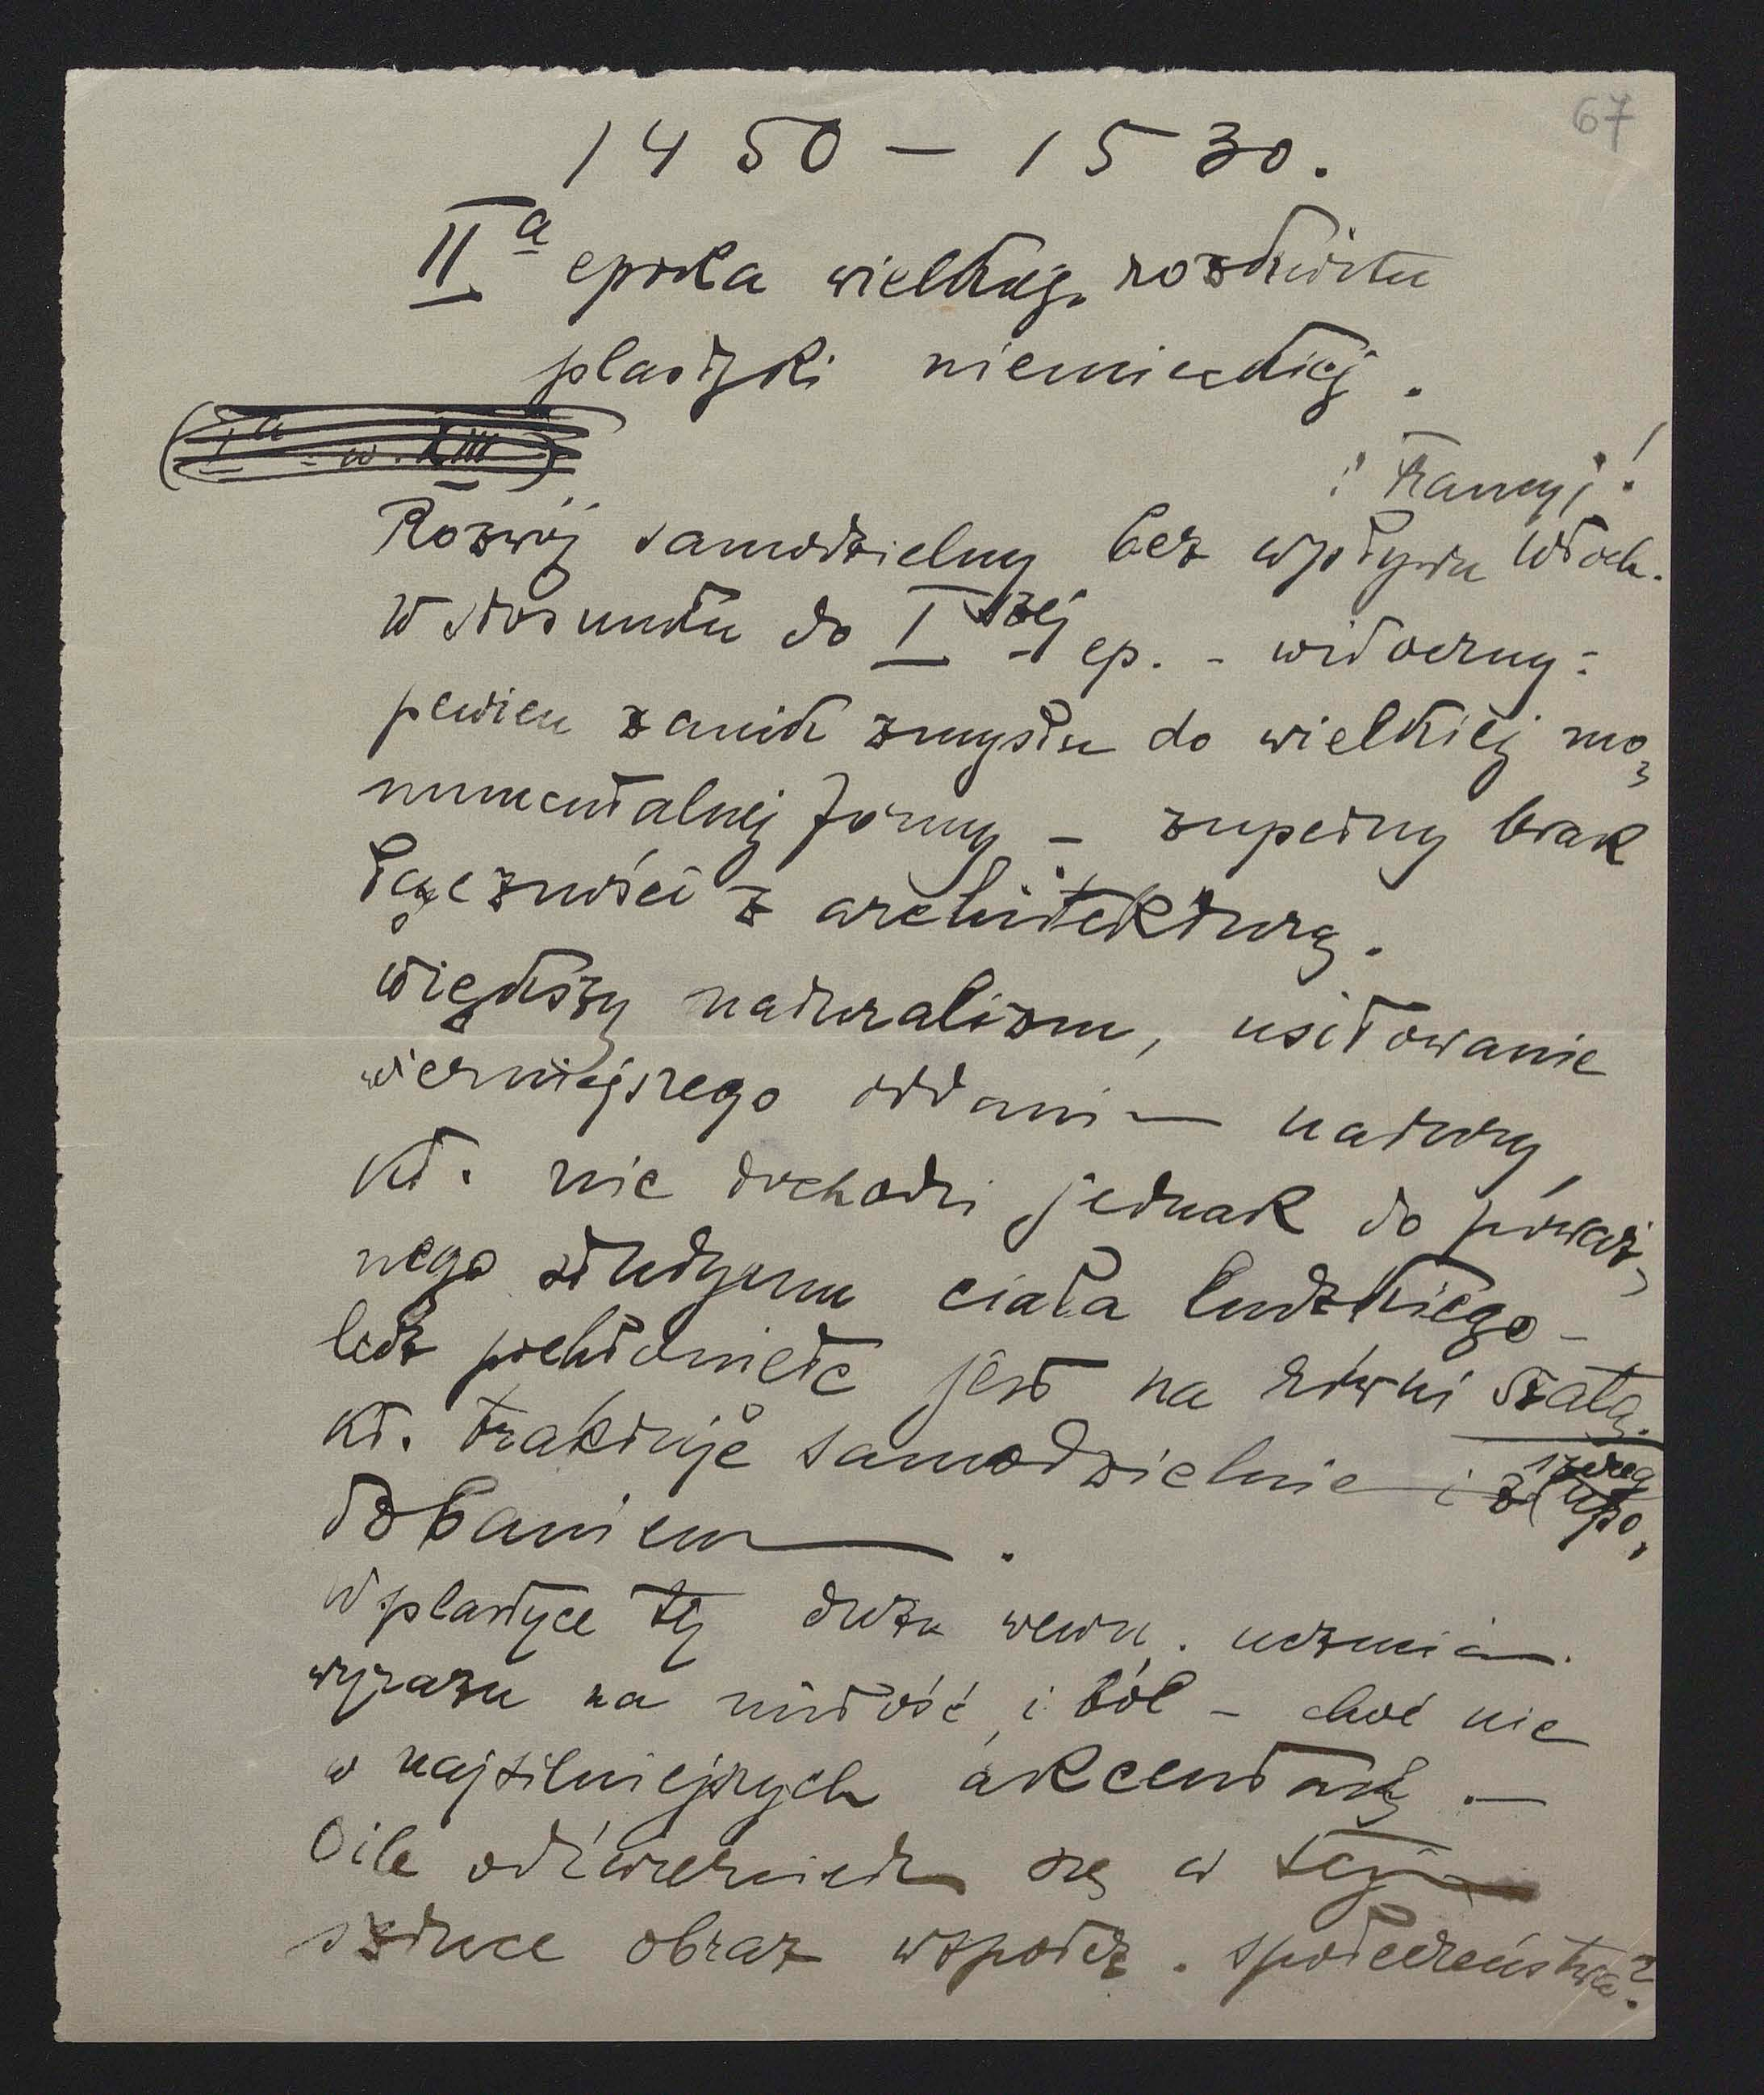 67
1450 — 1530.
IIa epoka wielkiego rozkwitu
plastyki niemieckiej.
(Ia - w. XIII)
i Francyi!
Rozwój samodzielny bez wpływu Włoch.
W stosunku do I szej ep. - widoczny:
pewien zanik zmysłu do wielkiej mo-
numentalnej formy – zupełny brak
łączności z architekturą.
Większy naturalizm, usiłowanie
wierniejszego oddania natury,
kt. nie dochodzi jednak do poważ-
nego studyum ciała ludzkiego –
lecz pochłonięte jest na równi szatą.
kt. traktuje samodzielnie i z
szereg
upo-
dobaniem.
W plastyce tej dużo wewn. uczucia
wyrazu na miłość i ból – choć nie
w najsilniejszych akcentach. —
O ile odzwierciedla się w tej
sztuce obraz współcz. społeczeństwa?